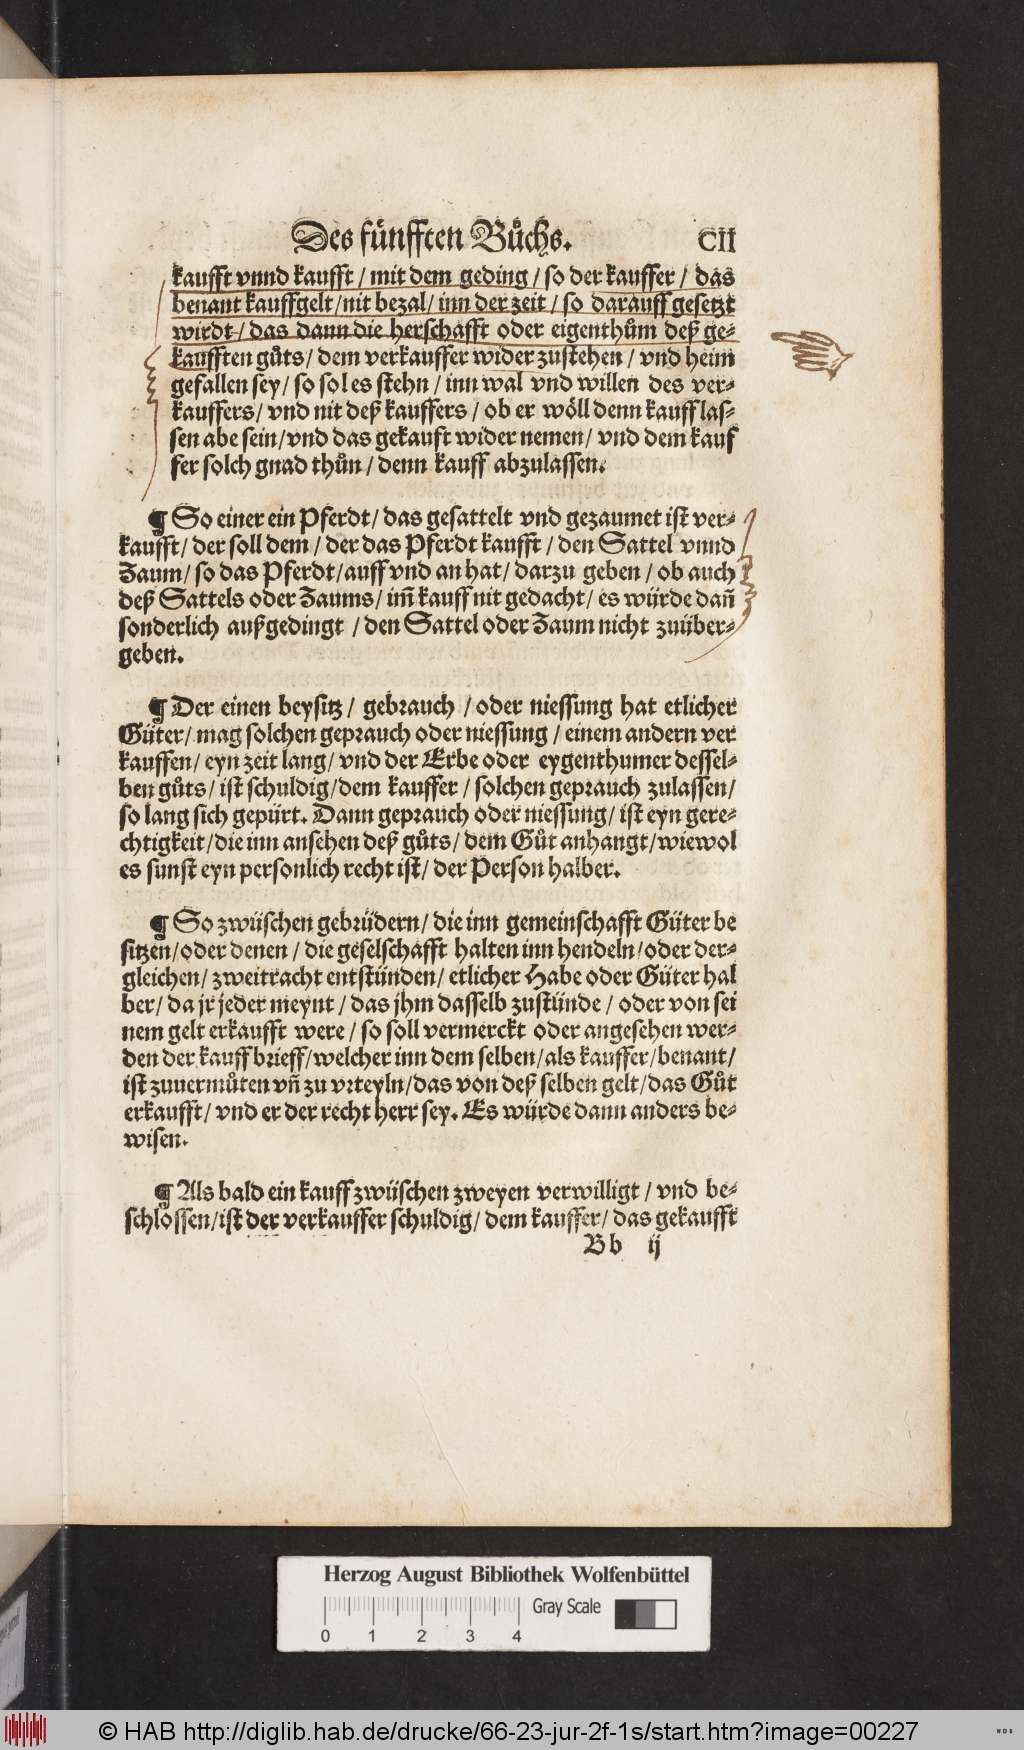 Des fünfften Bůchs. CII
kaufft vnnd kaufft / mit dem geding / so der kauffer / das
benant kauffgelt / nit bezal / inn der zeit / so darauff gesetzt
wirdt / das dann die herschafft oder eigenthům deß ge⸗
kaufften gůts / dem verkauffer wider zustehen / vnd heim
gefallen sey / so sol es stehn / inn wal vnd willen des ver⸗
kauffers / vnd nit deß kauffers / ob er wöll denn kauff las⸗
sen abe sein / vnd das gekauft wider nemen / vnd dem kauf
fer solch gnad thůn / denn kauff abzulassen.
¶ So einer ein Pferdt / das gesattelt vnd gezaumet ist ver⸗
kaufft / der soll dem / der das Pferdt kaufft / den Sattel vnnd
Zaum / so das Pferdt / auff vnd an hat / darzu geben / ob auch
deß Sattels oder Zaums / im̄ kauff nit gedacht / es würde dañ
sonderlich außgedingt / den Sattel oder Zaum nicht zuüber⸗
geben.
¶ Der einen beysitz / gebrauch / oder niessung hat etlicher
Güter / mag solchen geprauch oder niessung / einem andern ver
kauffen / eyn zeit lang / vnd der Erbe oder eygenthumer dessel⸗
ben gůts / ist schuldig / dem kauffer / solchen geprauch zulassen /
so lang sich gepürt. Dann geprauch oder niessung / ist eyn gere⸗
chtigkeit / die inn ansehen deß gůts / dem Gůt anhangt / wiewol
es sunst eyn personlich recht ist / der Person halber.
¶ So zwüschen gebrüdern / die inn gemeinschafft Güter be
sitzen / oder denen / die geselschafft halten inn hendeln / oder der⸗
gleichen / zweitracht entstünden / etlicher Habe oder Güter hal
ber / da jr jeder meynt / das jhm dasselb zustünde / oder von sei
nem gelt erkaufft were / so soll vermerckt oder angesehen wer⸗
den der kauff brieff / welcher inn dem selben / als kauffer / benant /
ist zuuermůten vñ zu vrteyln / das von deß selben gelt / das Gůt
erkaufft / vnd er der recht herr sey. Es würde dann anders be⸗
wisen.
¶ Als bald ein kauff zwüschen zweyen verwilligt / vnd be⸗
schlossen / ist der verkauffer schuldig / dem kauffer / das gekaufft
Bb ij
Herzog August Bibliothek Wolfenbüttel
Gray Scale
0 1 2 3 4
© HAB http://diglib.hab.de/drucke/66-23-jur-2f-1s/start.htm?image=00227
WDB